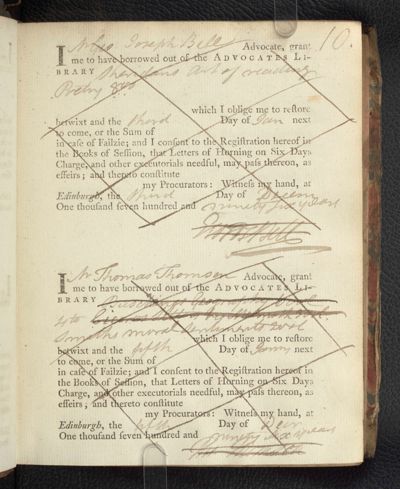 10.
I Mr Geo Joseph Bell Advocate, grant
me to have borrowed out of the ADVOCATES LI-
BRARY Sheridans Art of reading
Poetry 8vo
which I oblige me to restore
betwixt and the third Day of Jan next
to come, or the Sum of
in case of Failzie; and I consent to the Registration hereof in
the Books of Session, that Letters of Horning on Six Days
Charge, and other executorials needful, may pass thereon, as
effeirs; and thereto constitute
my Procurators: Witness my hand, at
Edinburgh, the third Day of Decem
One thousand seven hundred and ninety six years
I Mr Thomas Thomson Advocate, grant
me to have borrowed out of the ADVOCATES LI-
BRARY
4to
Smiths moral Sentiments 2 vol
which I oblige me to restore
betwixt and the fifth Day of Janry next
to come, or the Sum of
in case of Failzie; and I consent to the Registration hereof in
the Books of Session, that Letters of Horning on Six Days
Charge, and other executorials needful, may pass thereon, as
effeirs; and thereto constitute
my Procurators: Witness my hand, at
Edinburgh, the fifth Day of Decr
One thousand seven hundred and ninety six years